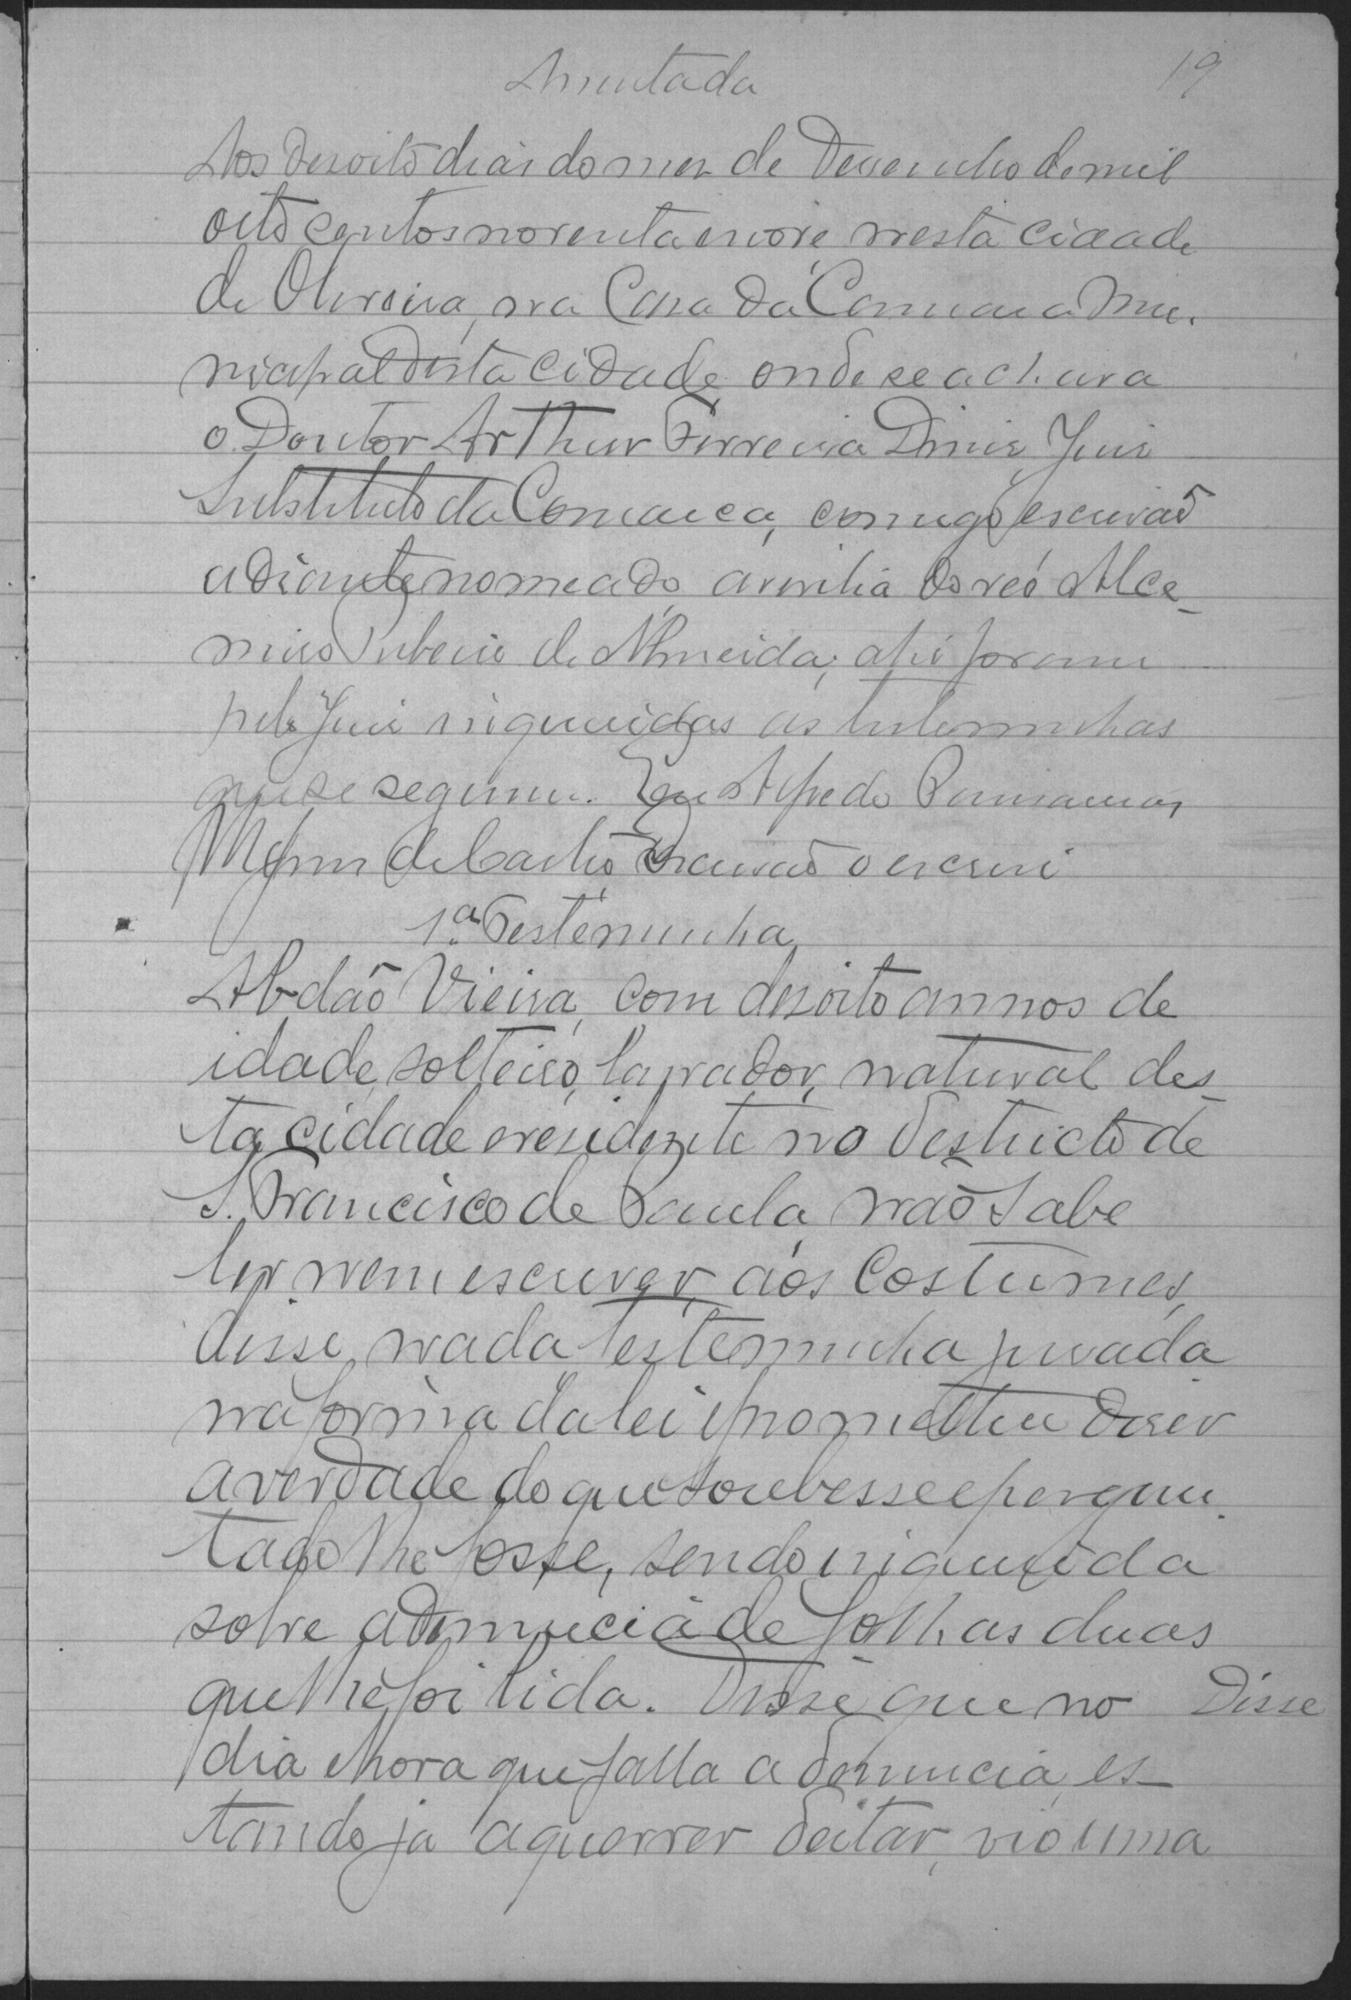 Assentada
19
Aos desoito dias do mez de Desembro de mil
oito centos noventa e nove, nesta cidade
de Oliveira, na Casa da Camara Mu-
nicipal desta cidade, onde se achava
o Doutor Arthur Ferreira Diniz, Juiz
Substituto da Comarca, comigo escrivão
adiante nomeado, a revilia do reó Alce-
miro de Almeida; ahi foram
pelo Juiz inqueridas as testemunhas
que se seguem. Eu Alfredo
de Castro Escrivão o escrevi
1.ª Testemunha
Abdão Vieira, com desoito annos de
idade, solteiro, lavrador, natural des-
ta cidade e residente no destricto de
S. Francisco de Paula, não sabe
ler nem escrever, aos costumes,
disse, nada, testemunha jurada
na forma da lei e prometteu diser
a verdade do que soubesse e pergun-
tado lhe fosse, sendo inquirida
sobre a denuncia de folhas duas
que lhe foi lida. Disse que no
Disse
dia e hora que falla a denuncia, es-
tando já a querrer deitar, vio uma